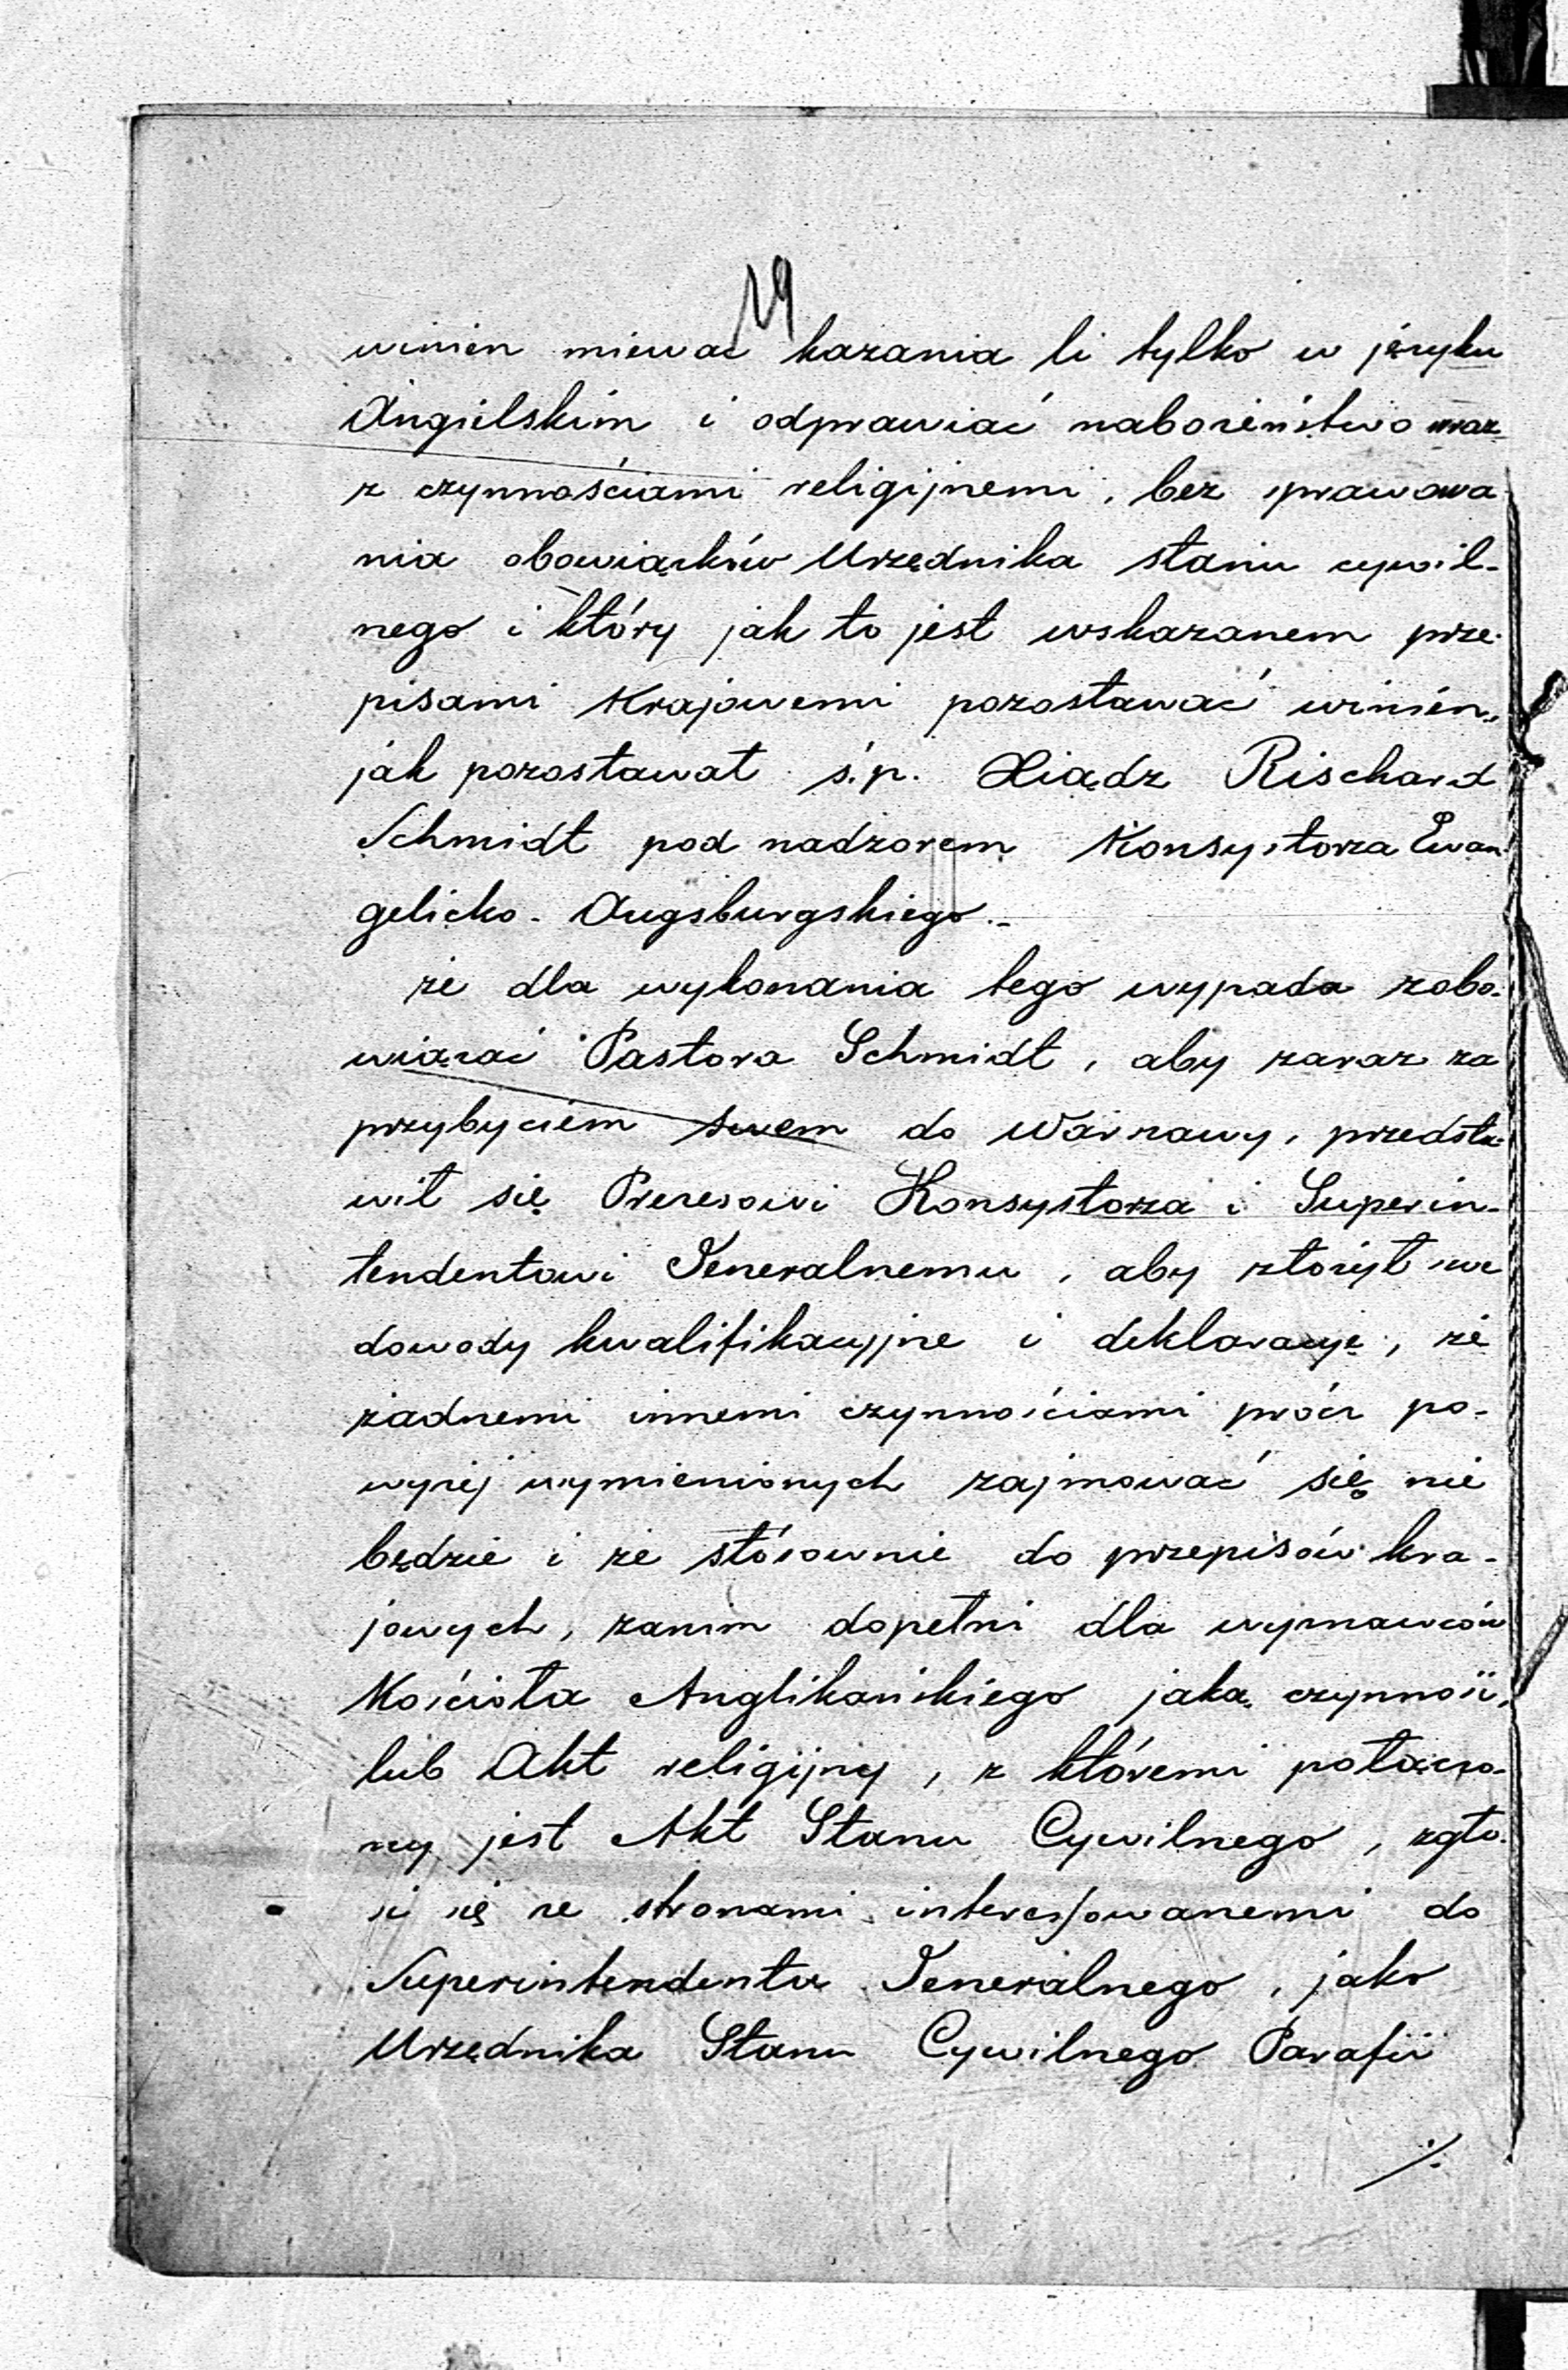 19
winien miewać kazania li tylko w języku
Angielskim i odprawiać nabożeństwo wraz
z czynnościami religijnemi, bez sprawowa
nia obowiązków Urzędnika stanu cywil-
nego i który jak to jest wskazanem prze-
pisami Krajowemi pozostawać winien,
jak pozostawał ś.p. Xiądz Rischard
Schmidt pod nadzorem Konsystorza Ewan
gelicko-Augsburgskiego.-
że dla wykonania tego wypada zobo-
wiązać Pastora Schmidt, aby zaraz za
przybyciem swem do Warszawy, przedsta-
wił się Prezesowi Konsystorza i Superin-
tendentowi Generalnemu, aby złożył swe
dowody kwalifikacyjne i deklaracyę, że
żadnemi innemi czynnościami prócz po-
wyżej wymienionych zajmować się nie
będzie i że stósownie do przepisów kra-
jowych, zanim dopełni dla wyznawców
Kościoła Anglikańskiego jaką czynność,
lub Akt religijny, z któremi połączo-
ny jest Akt Stanu Cywilnego, zgło-
si się ze stronami interessowanemi do
Superintendenta Generalnego, jako
Urzędnika Stanu Cywilnego Parafii
./.